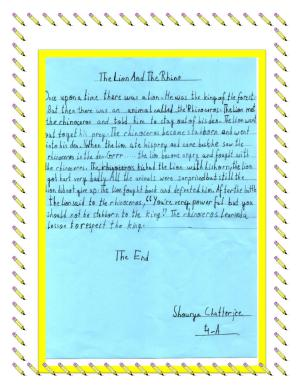 The Lion And The Rhino
Once upon a time there was a lion. He was the king of the forest.
But then there was an animal called the Rhinoceros. The Lion met
the rhinoceros and told him to stay out of his den. The lion went
out to get his prey. The rhinoceros became stubborn and went
into his den. When the lion ate his prey and came back he saw the
rhinoceros in the den Grrr.... the lion became angry and fought with
the rhinoceros. The rhinoceros the lion with his horn. the lion
got hurt very badly. All the animals were surprised but still the
lion did not give up. The lion fought back and defeated him. After the battle
the lion said to the rhinoceros, "You're very powerful but you
should not be stubborn to the king". The rhinoceros learnt a
lesson to respect the king.
The End
Shourya Chatterjee
4-A